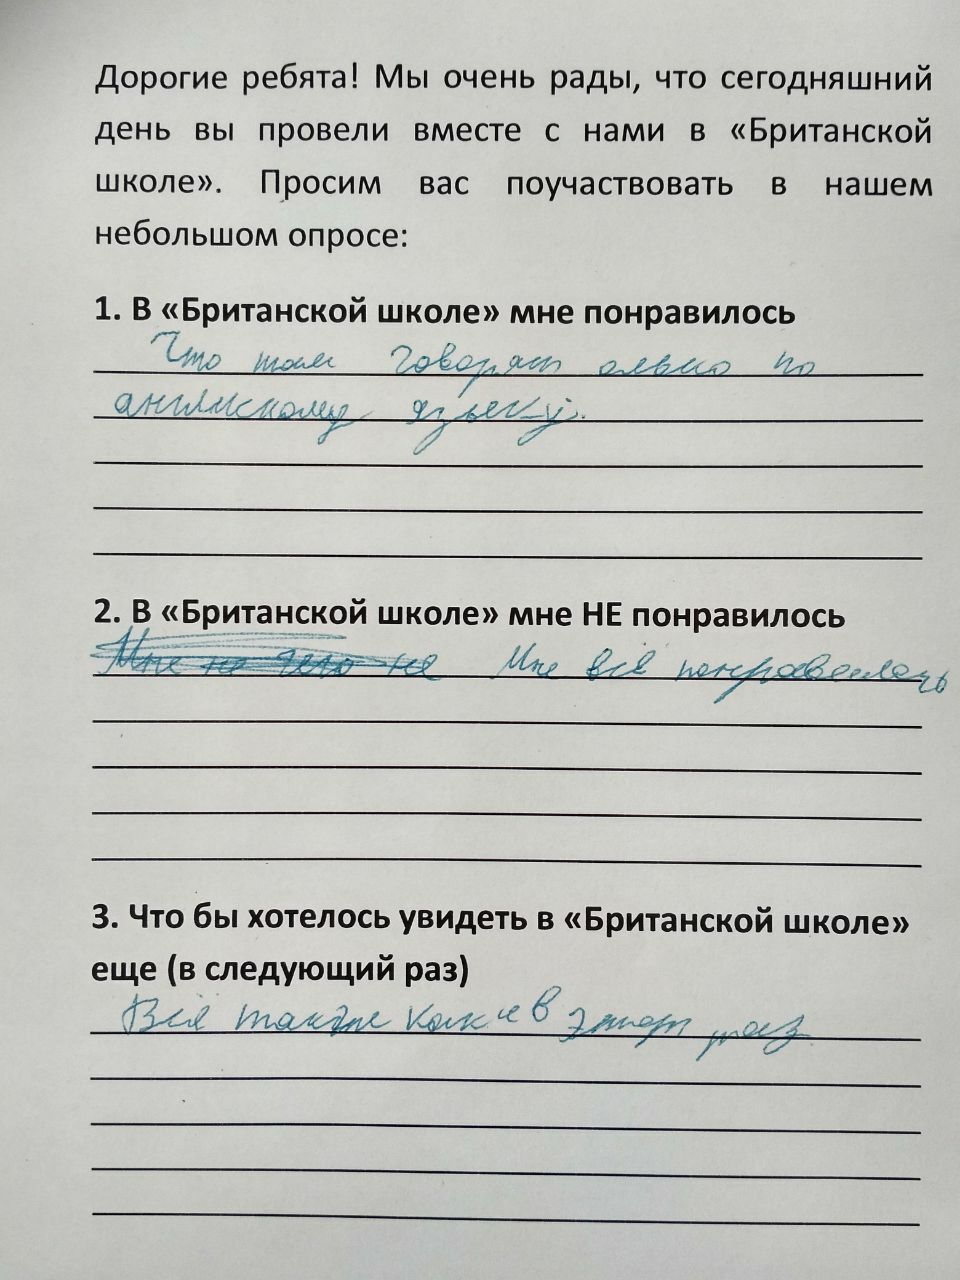 Дорогие ребята! Мы очень рады, что сегодняшний
день вы провели вместе с нами в «Британской
школе». Просим вас поучаствовать в нашем
небольшом опросе:
1. В «Британской школе» мне понравилось
Что там говорят олько по
англискому языку.
2. В «Британской школе» мне НЕ понравилось
Мне не чего не Мне всё понправилось
3. Что бы хотелось увидеть в «Британской школе»
еще (в следующий раз)
Всё также как и в этот раз